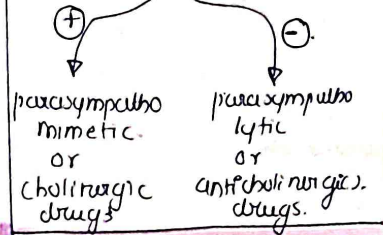 +
-.
parasympatho
mimetic.
or
cholinurgic
drugs
parasympatho
lytic
or
anticholinurgic).
drugs.